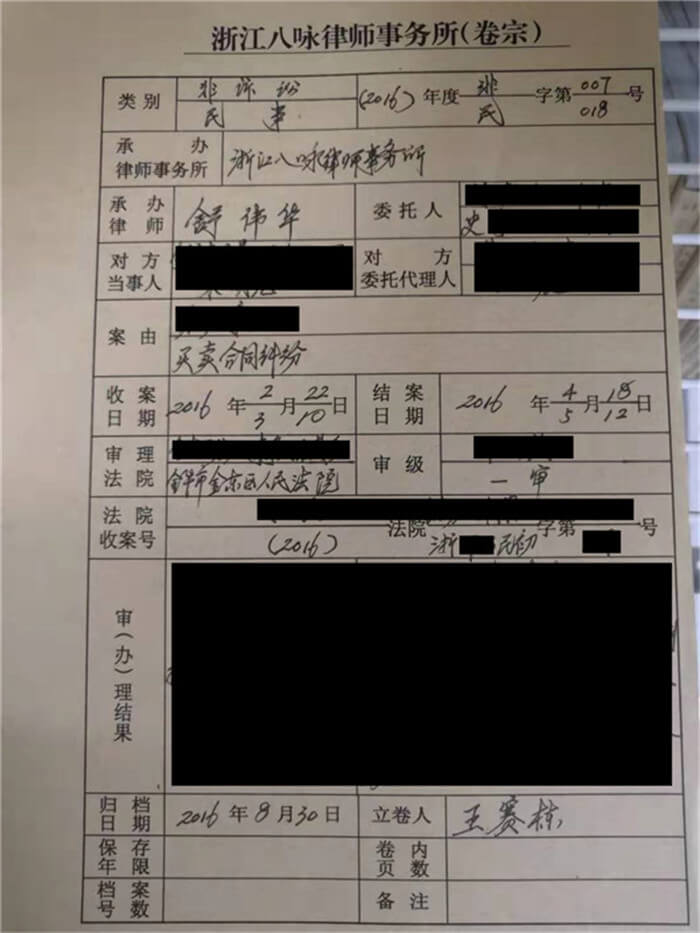 浙江八咏律师事务所(卷宗)
类别 非诉讼 (2016) 年度 非 字第 007 号
民事 民 018
承办律师事务所 浙江八咏律师事务所
承办律师 舒伟华 委托人 史
对方当事人 对方委托代理人
案由
买卖合同纠纷
收案日期 2016 年 2 月 22 日 结案日期 2016 年 4 月 18 日
3 10 5 12
审理法院 金华市金东区人民法院 审级 一审
法院收案号 (2016) 法院 浙 民初 字第 号
审(办)理结果
归档日期 2016 年 8 月 30 日 立卷人 王赛栋
保存年限 卷内页数
档案号数 备注